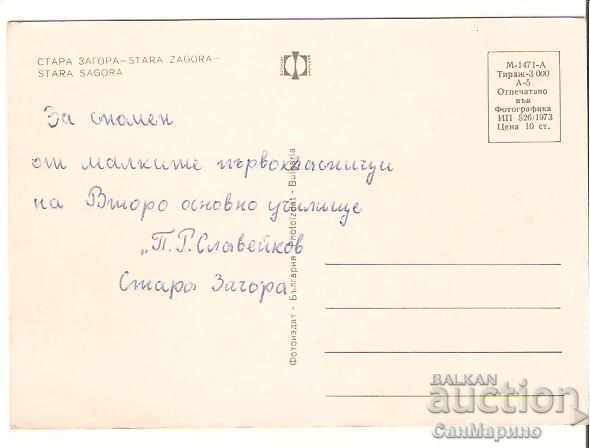 СТАРА ЗАГОРА–STARA ZAGORA–
STARA SAGORA
М-1471-А
Тираж-3 000
А-5
Отпечатано
във
Фотографика
ИП 526/1973
Цена 10 ст.
За спомен
от малките първокласници
на Второ основно училище
„П.Р.Славейков
Стара Загора
Фотоиздат - България Photoizdat - Bulgaria
BALKAN
auction
СанМарино